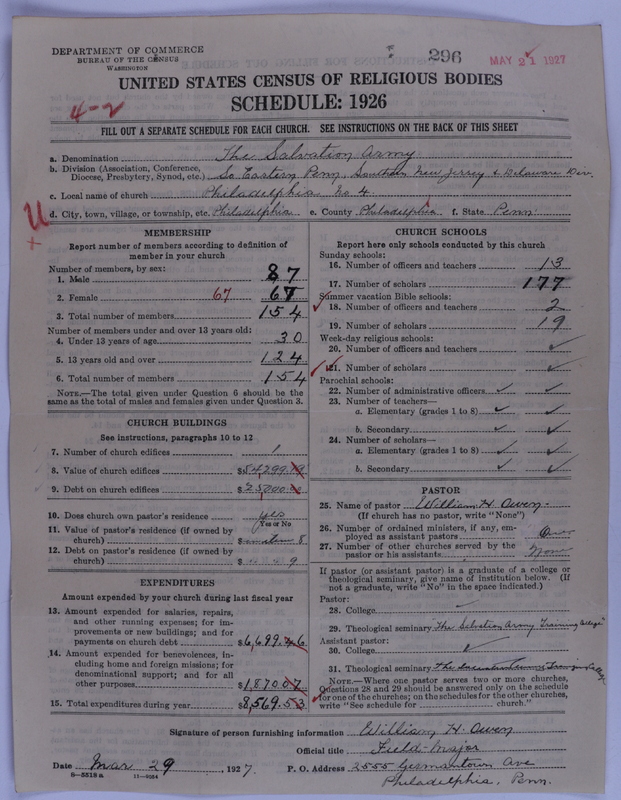 DEPARTMENT OF COMMERCE
BUREAU OF THE CENSUS
WASHINGTON
296
MAY 21 1927
4-2
UNITED STATES CENSUS OF RELIGIOUS BODIES
SCHEDULE: 1926
FILL OUT A SEPARATE SCHEDULE FOR EACH CHURCH. SEE INSTRUCTIONS ON THE BACK OF THIS SHEET
a. Denomination The Salvation Army
b. Division (Association, Conference, Diocese, Presbytery, Synod, etc.) So Eastern Penn, Southern New Jersey & Delaware Div.
c. Local name of church Philadelphia No 4
d. City, town, village, or township, etc. Philadelphia e. County Philadelphia f. State Penn.
U
MEMBERSHIP
Report number of members according to definition of member in your church
Number of members, by sex:
1. Male 87
2. Female 67 67
3. Total number of members 154
Number of members under and over 13 years old:
4. Under 13 years of age 30
5. 13 years old and over 124
6. Total number of members 154
NOTE.—The total given under Question 6 should be the same as the total of males and females given under Question 3.
CHURCH BUILDINGS
See instructions, paragraphs 10 to 12
7. Number of church edifices 1
8. Value of church edifices $54,299.
9. Debt on church edifices $25,000.
10. Does church own pastor's residence yes
Yes or No
11. Value of pastor's residence (if owned by church) $ item 8
12. Debt on pastor's residence (if owned by church) $ 9
EXPENDITURES
Amount expended by your church during last fiscal year
13. Amount expended for salaries, repairs, and other running expenses; for improvements or new buildings; and for payments on church debt $6,699.46
14. Amount expended for benevolences, including home and foreign missions; for denominational support; and for all other purposes $1,870.07
15. Total expenditures during year $8,569.53
CHURCH SCHOOLS
Report here only schools conducted by this church
Sunday schools:
16. Number of officers and teachers 13
17. Number of scholars 177
Summer vacation Bible schools:
18. Number of officers and teachers 2
19. Number of scholars 19
Week-day religious schools:
20. Number of officers and teachers ✓
21. Number of scholars ✓
Parochial schools:
22. Number of administrative officers ✓ ✓
23. Number of teachers—
a. Elementary (grades 1 to 8) ✓ ✓
b. Secondary ✓ ✓
24. Number of scholars—
a. Elementary (grades 1 to 8) ✓ ✓
b. Secondary ✓ ✓
PASTOR
25. Name of pastor William H. Owen
(If church has no pastor, write "None")
26. Number of ordained ministers, if any, employed as assistant pastors
27. Number of other churches served by the pastor or his assistants
If pastor (or assistant pastor) is a graduate of a college or theological seminary, give name of institution below. (If not a graduate, write "No" in the space indicated.)
Pastor:
28. College ✓
29. Theological seminary The Salvation Army Training College
Assistant pastor:
30. College ✓
31. Theological seminary The Salvation Army Training College
NOTE.—Where one pastor serves two or more churches, Questions 28 and 29 should be answered only on the schedule for one of the churches; on the schedules for the other churches, write "See schedule for church."
Signature of person furnishing information William H. Owen
Official title Field-Major
Date Mar 29, 1927. P. O. Address 2555 Germantown Ave
8—5518a 11—9064
Philadelphia, Penn.